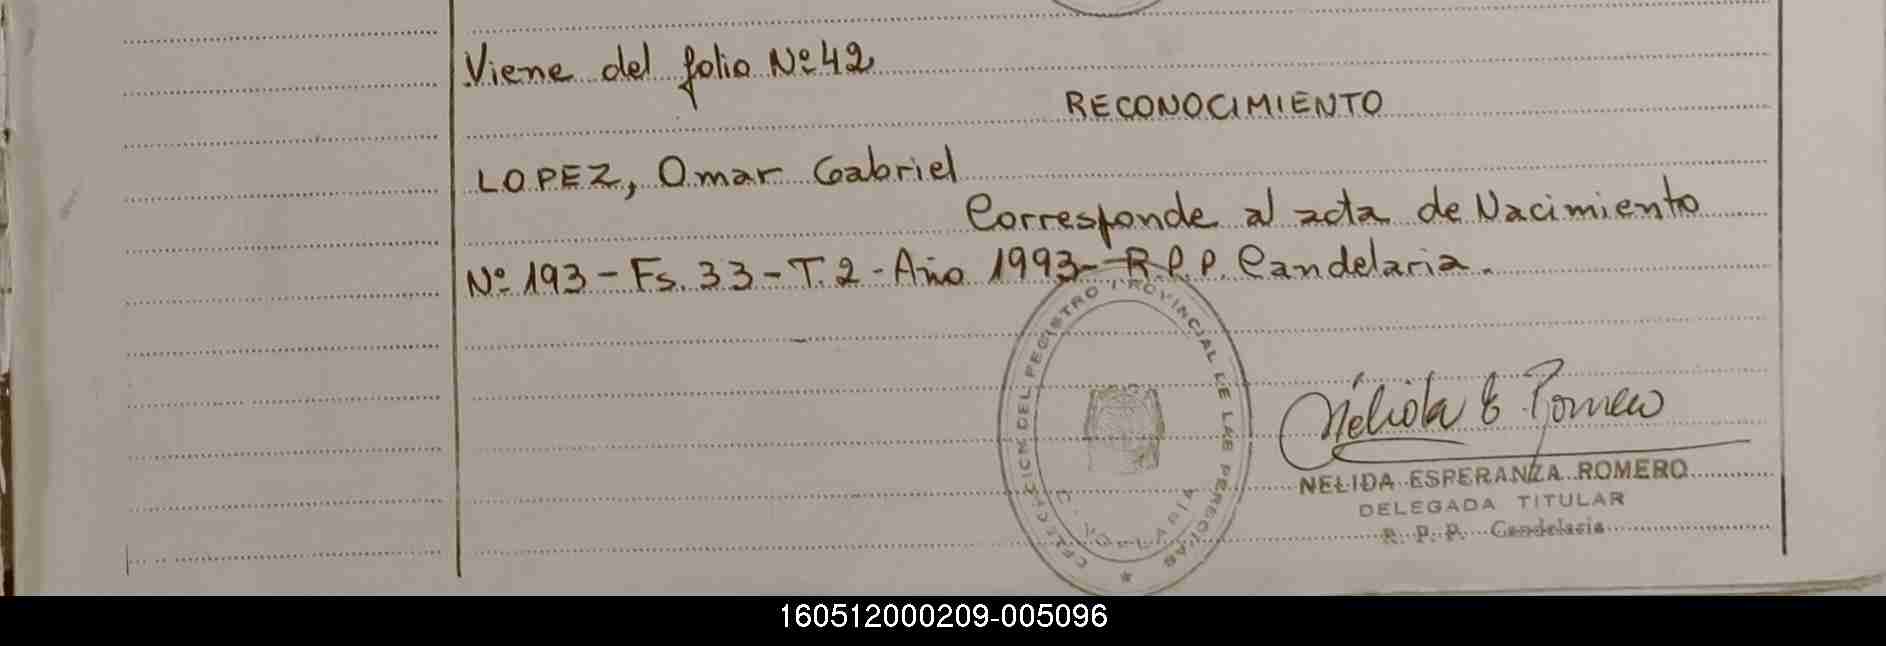 Viene del folio Nº 42
RECONOCIMIENTO
LOPEZ, Omar Gabriel
Corresponde al acta de Nacimiento
Nº 193 - Fs. 33 - T. 2 - Año 1993 - R.P.P. Candelaria.
DEL REGISTRO PROVINCIAL DE LAS PERSONAS
Nélida E Romero
NELIDA ESPERANZA ROMERO
DELEGADA TITULAR
R. P. P. Candelaria
160512000209-005096